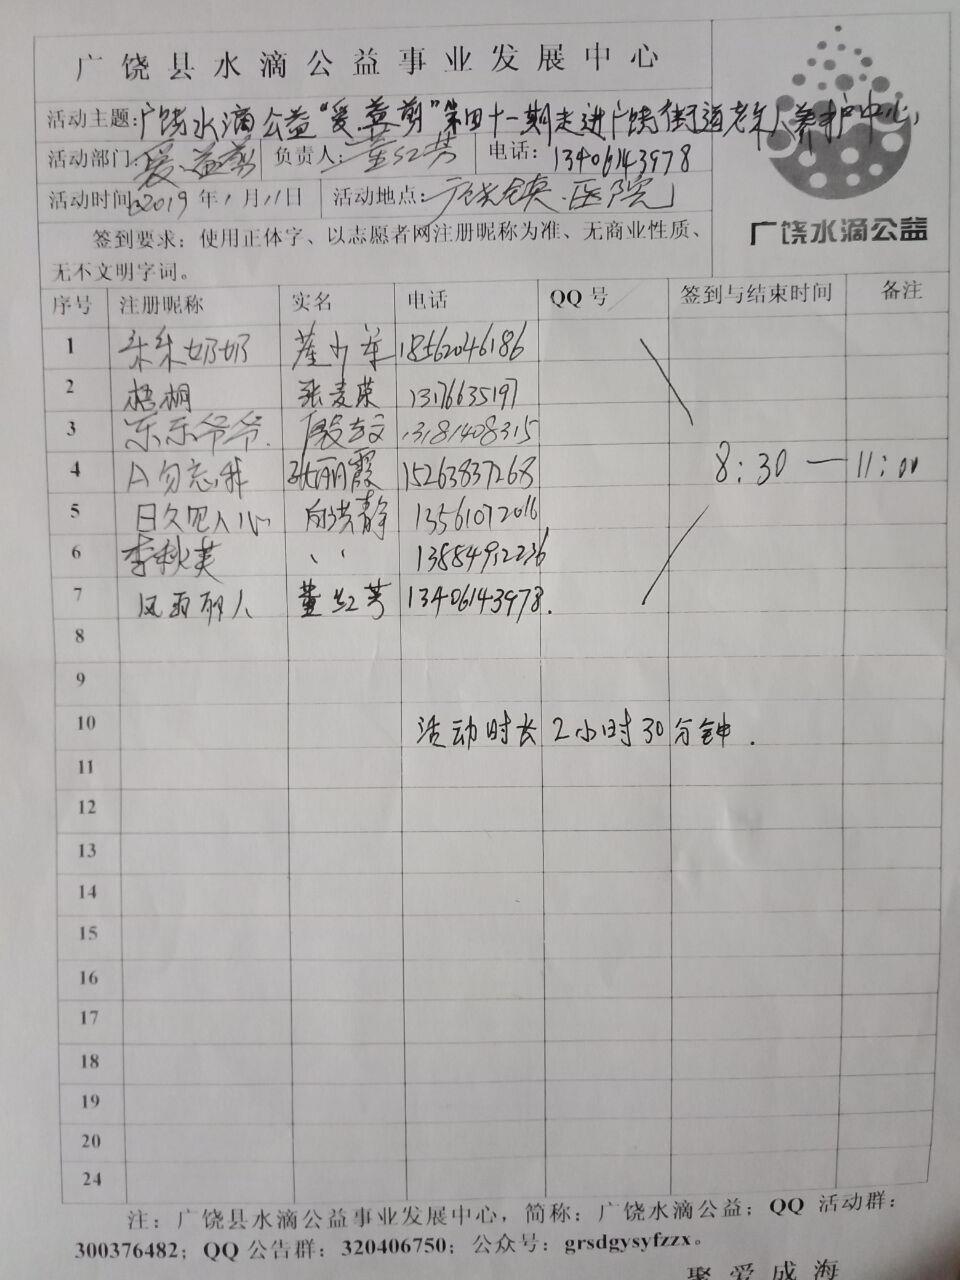 广饶县水滴公益事业发展中心
活动主题:广饶水滴公益“爱益剪”第四十一期走进广饶街道老年人养护中心
活动部门:爱益剪 负责人:董红芳 电话:13406143978
活动时间:2019年1月11日 活动地点:广饶镇医院
广饶水滴公益
签到要求:使用正体字、以志愿者网注册昵称为准、无商业性质、
无不文明字词。
序号 注册昵称 实名 电话 QQ号 签到与结束时间 备注
1 朵朵奶奶 18562046186
2 梧桐 张麦荣 13176635197
3 乐乐爷爷 13181408315
4 A勿忘我 张丽霞 15263837268 8:30—11:00
5 日久见人心 向洪静 13561072016
6 李秋英 、、 13884912236
7 风雨丽人 董红芳 13406143978.
8
9
10 活动时长2小时30分钟.
11
12
13
14
15
16
17
18
19
20
24
注:广饶县水滴公益事业发展中心,简称:广饶水滴公益;QQ 活动群:
300376482;QQ公告群:320406750;公众号:grsdgysyfzzx。
聚爱成海